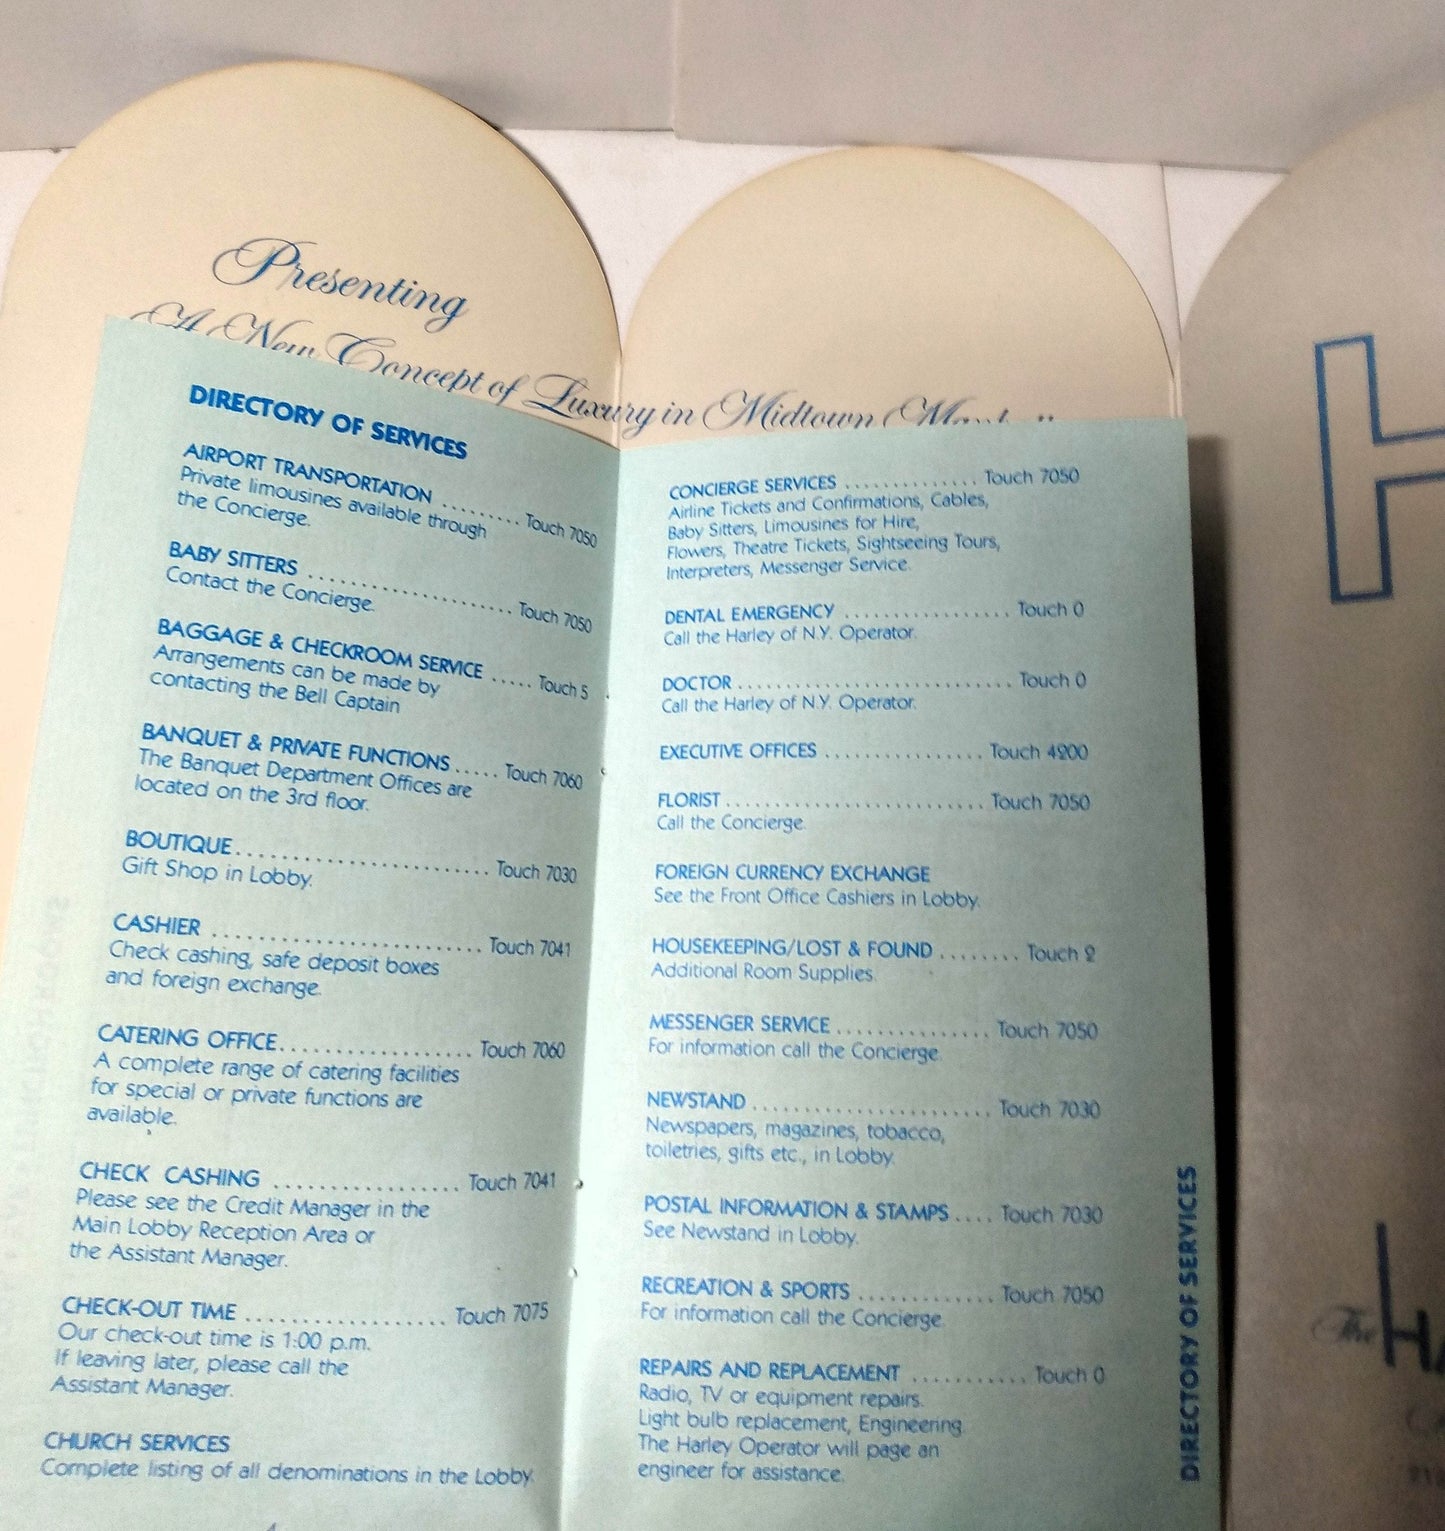 Presenting
A New Concept of Luxury in Midtown
DIRECTORY OF SERVICES
AIRPORT TRANSPORTATION ......... Touch 7050
Private limousines available through
the Concierge.
BABY SITTERS ........................ Touch 7050
Contact the Concierge.
BAGGAGE & CHECKROOM SERVICE ..... Touch 5
Arrangements can be made by
contacting the Bell Captain
BANQUET & PRIVATE FUNCTIONS ..... Touch 7060
The Banquet Department Offices are
located on the 3rd floor.
BOUTIQUE ........................ Touch 7030
Gift Shop in Lobby.
CASHIER ........................ Touch 7041
Check cashing, safe deposit boxes
and foreign exchange.
CATERING OFFICE.................. Touch 7060
A complete range of catering facilities
for special or private functions are
available.
CHECK CASHING ................. Touch 7041
Please see the Credit Manager in the
Main Lobby Reception Area or
the Assistant Manager.
CHECK-OUT TIME ................... Touch 7075
Our check-out time is 1:00 p.m.
If leaving later, please call the
Assistant Manager.
CHURCH SERVICES
Complete listing of all denominations in the Lobby.
CONCIERGE SERVICES .............. Touch 7050
Airline Tickets and Confirmations, Cables,
Baby Sitters, Limousines for Hire,
Flowers, Theatre Tickets, Sightseeing Tours,
Interpreters, Messenger Service.
DENTAL EMERGENCY ................. Touch 0
Call the Harley of N.Y. Operator.
DOCTOR ............................ Touch 0
Call the Harley of N.Y. Operator.
EXECUTIVE OFFICES ................ Touch 4200
FLORIST .......................... Touch 7050
Call the Concierge.
FOREIGN CURRENCY EXCHANGE
See the Front Office Cashiers in Lobby.
HOUSEKEEPING/LOST & FOUND ........ Touch 2
Additional Room Supplies.
MESSENGER SERVICE ................ Touch 7050
For information call the Concierge.
NEWSTAND ........................ Touch 7030
Newspapers, magazines, tobacco,
toiletries, gifts etc., in Lobby.
POSTAL INFORMATION & STAMPS .... Touch 7030
See Newstand in Lobby.
RECREATION & SPORTS .............. Touch 7050
For information call the Concierge.
REPAIRS AND REPLACEMENT ............ Touch 0
Radio, TV or equipment repairs.
Light bulb replacement, Engineering.
The Harley Operator will page an
engineer for assistance.
DIRECTORY OF SERVICES
H
The